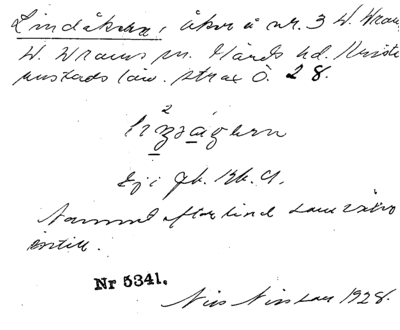 Lindåkern, åker å nr. 3 V. Vram
V. Vrams sn. Gärds hd. Kristi
anstads län. strax Ö. 28.
Ej i Jb. Kb. A.
Namnet efter lind som växer
intill.
Nr 5341.
Nils Nilsson 1928.